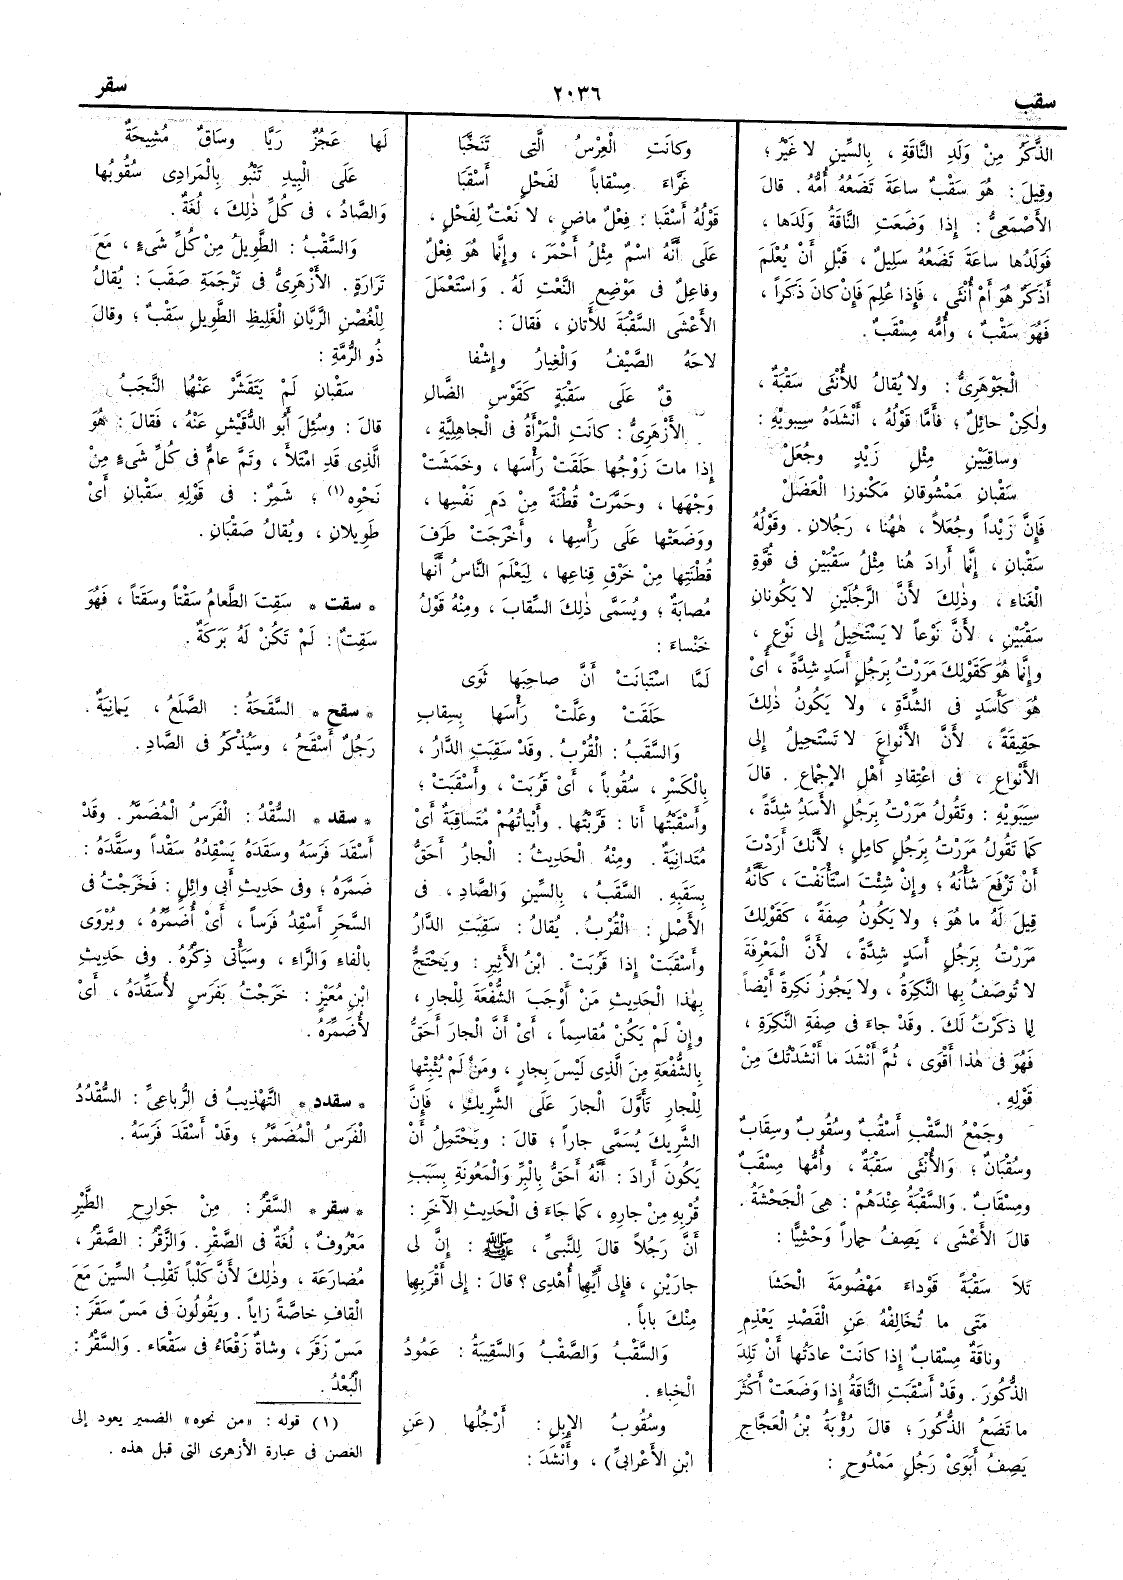 سقب
٢٠٣٦
سقر
الذَّكَرُ مِنْ وَلَدِ النَّاقَةِ ، بِالسِّينِ لا غَيْرُ ؛
وقِيلَ : هُوَ سَقْبٌ ساعَةَ تَضَعُهُ أُمُّهُ . قالَ
الأَصْمَعِىُّ : إِذا وَضَعَتِ النَّاقَةُ وَلَدَها ،
فَوَلَدُها ساعَةَ تَضَعُهُ سَلِيلٌ ، قَبْلَ أَنْ يُعْلَمَ
أَذَكَرٌ هُوَ أَمْ أُنْثَى ، فَإِذا عُلِمَ فَإِنْ كانَ ذَكَراً ،
فَهُوَ سَقْبٌ ، وأُمُّه مِسْقَبٌ .
الْجَوْهَرِىُّ : ولا يُقالُ لِلأُنْثَى سَقْبَةٌ ،
ولٰكِنْ حائِلٌ ؛ فأَمَّا قَوْلُهُ ، أَنْشَدَهُ سِيبوَيْهِ :
وساقِيَيْنِ مِثْلِ زَيْدٍ وجُعَلْ
سَقْبانِ مَمْشُوقانِ مَكْنُوزا الْعَضَلْ
فَإِنَّ زَيْداً وجُعَلاً ، هٰهُنا ، رَجُلانِ . وقَوْلُهُ
سَقْبانِ ، إِنَّما أَرادَ هُنا مِثْلُ سَقْبَيْنِ فى قُوَّةِ
الْغَناءِ ، وذٰلِكَ لأَنَّ الرَّجُلَيْنِ لا يَكُونانِ
سَقْبَيْنِ ، لأَنَّ نَوْعاً لا يَسْتَحِيلُ إِلى نَوْعٍ ،
وإِنَّما هُوَ كَقَوْلِكَ مَرَرْتُ بِرَجُلٍ أَسَدٍ شِدَّةً ، أَىْ
هُوَ كَأَسَدٍ فى الشِّدَّةِ ، ولا يَكُونُ ذٰلِكَ
حَقِيقَةً ، لأَنَّ الأَنْواعَ لا تَسْتَحِيلُ إِلى
الأَنْواعِ ، فى اعْتِقادِ أَهْلِ الإِجْماعِ . قالَ
سِيبَوَيْهِ : وتَقُولُ مَرَرْتُ بِرَجُلٍ الأَسَدُ شِدَّةً ،
كَما تَقُولُ مَرَرْتُ بِرَجُلٍ كامِلٍ ؛ لأَنَّكَ أَرَدْتَ
أَنْ تَرْفَعَ شَأْنَهُ ؛ وإِنْ شِئْتَ اسْتَأْنَفْتَ ، كَأَنَّهُ
قِيلَ لَهُ ما هُوَ ؛ ولا يَكُونُ صِفَةً ، كَقَوْلِكَ
مَرَرْتُ بِرَجُلٍ أَسَدٍ شِدَّةً ، لأَنَّ الْمَعْرِفَةَ
لا تُوصَفُ بِها النَّكِرَةُ ، ولا يَجُوزُ نَكِرَةً أَيْضاً
لِما ذَكَرْتُ لَكَ . وقَدْ جاءَ فى صِفَةِ النَّكِرَةِ ،
فَهُوَ فى هٰذا أَقْوَى ، ثُمَّ أَنْشَدَ ما أَنْشَدْتُكَ مِنْ
قَوْلِهِ .
وجَمْعُ السَّقْبِ أَسْقُبٌ وسُقُوبٌ وسِقابٌ
وسُقْبانٌ ؛ والأُنْثَى سَقْبَةٌ ، وأُمُّها مِسْقَبٌ
ومِسْقابٌ . والسَّقْبَةُ عِنْدَهُمْ : هِىَ الْجَحْشَةُ .
قالَ الأَعْشَى ، يَصِفُ حِماراً وَحْشِيًّا :
تَلاَ سَقْبَةً قَوْداءَ مَهْضُومَةَ الْحَشَا
مَتَى ما تُخالِفْهُ عَنِ الْقَصْدِ يَعْذِمِ
وناقَةٌ مِسْقابٌ إِذا كانَتْ عادَتُها أَنْ تَلِدَ
الذُّكُورَ . وقَدْ أَسْقَبَتِ النَّاقَةُ إِذا وَضَعَتْ أَكْثَرَ
ما تَضَعُ الذُّكُورَ ؛ قالَ رُؤْبَةُ بْنُ الْعَجَّاجِ
يَصِفُ أَبَوَىْ رَجُلٍ مَمْدُوحٍ :
وكانَتِ الْعِرْسُ الَّتِى تَنَخَّبَا
غَرَّاءَ مِسْقاباً لِفَحْلٍ أَسْقَبَا
قَوْلُهُ أَسْقَبَا : فِعْلٌ ماضٍ ، لا نَعْتٌ لِفَحْلٍ ،
عَلَى أَنَّهُ اسْمٌ مِثْلُ أَحْمَرَ ، وإِنَّما هُوَ فِعْلٌ
وفاعِلٌ فى مَوْضِعِ النَّعْتِ لَهُ . واسْتَعْمَلَ
الأَعْشَى السَّقْبَةَ لِلأَتانِ ، فَقالَ :
لاحَهُ الصَّيْفُ والْغِيارُ وإِشْفا
قٌ عَلَى سَقْبَةٍ كَقَوْسِ الضَّالِ
الأَزْهَرِىُّ : كانَتِ الْمَرْأَةُ فى الْجاهِلِيَّةِ ،
إِذا ماتَ زَوْجُها حَلَقَتْ رَأْسَها ، وخَمَشَتْ
وَجْهَها ، وحَمَّرَتْ قُطْنَةً مِنْ دَمِ نَفْسِها ،
ووَضَعَتْها عَلَى رَأْسِها ، وأَخْرَجَتْ طَرَفَ
قُطْنَتِها مِنْ خَرْقِ قِناعِها ، لِيَعْلَمَ النَّاسُ أَنَّها
مُصابَةٌ ؛ ويُسَمَّى ذٰلِكَ السِّقابَ ، ومِنْهُ قَوْلُ
خَنْساءَ :
لَمَّا اسْتَبانَتْ أَنَّ صاحِبَها ثَوَى
حَلَقَتْ وعَلَّتْ رَأْسَها بِسِقابِ
والسَّقَبُ : الْقُرْبُ . وقَدْ سَقِبَتِ الدَّارُ ،
بِالْكَسْرِ ، سُقُوباً ، أَىْ قَرُبَتْ ، وأَسْقَبَتْ ؛
وأَسْقَبْتُها أَنا : قَرَّبْتُها . وأَبْياتُهُمْ مُتَساقِبَةٌ أَىْ
مُتَدانِيَةٌ . ومِنْهُ الْحَدِيثُ : الْجارُ أَحَقُّ
بِسَقَبِهِ . السَّقَبُ ، بِالسِّينِ والصَّادِ ، فى
الأَصْلِ : الْقُرْبُ . يُقالُ : سَقِبَتِ الدَّارُ
وأَسْقَبَتْ إِذا قَرُبَتْ . ابْنُ الأَثِيرِ : ويَحْتَجُّ
بِهٰذا الْحَدِيثِ مَنْ أَوْجَبَ الشُّفْعَةَ لِلْجارِ ،
وإِنْ لَمْ يَكُنْ مُقاسِماً ، أَىْ أَنَّ الْجارَ أَحَقُّ
بِالشُّفْعَةِ مِنَ الَّذِى لَيْسَ بِجارٍ ، ومَنْ لَمْ يُثْبِتْها
لِلْجارِ تَأَوَّلَ الْجارَ عَلَى الشَّرِيكِ ، فَإِنَّ
الشَّرِيكَ يُسَمَّى جاراً ؛ قالَ : ويَحْتَمِلُ أَنْ
يَكُونَ أَرادَ : أَنَّهُ أَحَقُّ بِالْبِرِّ والْمَعُونَةِ بِسَبَبِ
قُرْبِهِ مِنْ جارِهِ ، كَما جَاءَ فى الْحَدِيثِ الآخَرِ :
أَنَّ رَجُلاً قالَ لِلنَّبِىِّ ، ﷺ : إِنَّ لِى
جارَيْنِ ، فَإِلى أَيِّهِما أُهْدِى ؟ قالَ : إِلى أَقْرَبِهِما
مِنْكَ باباً .
والسَّقْبُ والصَّقْبُ والسَّقِيبَةُ : عَمُودُ
الْخِباءِ .
وسُقُوبُ الإِبِلِ : أَرْجُلُها (عَنِ
ابْنِ الأَعْرابِىِّ) ، وأَنْشَدَ :
لَها عَجُزٌ رَيَّا وساقٌ مُشِيحَةٌ
عَلَى الْبِيدِ تَنْبُو بِالْمَرادِى سُقُوبُها
والصَّادُ ، فى كُلِّ ذٰلِكَ ، لُغَةٌ .
والسَّقْبُ : الطَّوِيلُ مِنْ كُلِّ شَىْءٍ ، مَعَ
تَرارَةٍ . الأَزْهَرِىُّ فى تَرْجَمَةِ صَقَبَ : يُقالُ
لِلْغُصْنِ الرَّيَّانِ الْغَلِيظِ الطَّوِيلِ سَقْبٌ ؛ وقالَ
ذُو الرُّمَّةِ :
سَقْبانِ لَمْ يَتَقَشَّرْ عَنْهُما النَّجَبُ
قالَ : وسُئِلَ أَبُو الدُّقَيْشِ عَنْهُ ، فَقالَ : هُوَ
الَّذِى قَدِ امْتَلأَ ، وتَمَّ عامٌّ فى كُلِّ شَىْءٍ مِنْ
نَحْوِه (١) ؛ شَمِرٌ : فى قَوْلِهِ سَقْبانِ أَىْ
طَوِيلانِ ، ويُقالُ صَقْبانِ .
* سقت * سَقِتَ الطَّعامُ سَقْتاً وسَقَتاً ، فَهُوَ
سَقِتٌ : لَمْ تَكُنْ لَهُ بَرَكَةٌ .
* سقح * السَّقَحَةُ : الصَّلَعُ ، يَمانِيَةٌ .
رَجُلٌ أَسْقَحُ ، وسَيُذْكَرُ فى الصَّادِ .
* سقد * السُّقْدُ : الْفَرَسُ الْمُضَمَّرُ . وقَدْ
أَسْقَدَ فَرَسَهُ وسَقَدَهُ يَسْقِدُهُ سَقْداً وسَقَّدَهُ :
ضَمَّرَهُ ؛ وفى حَدِيثِ أَبِى وائِلٍ : فَخَرَجْتُ فى
السَّحَرِ أَسْقِدُ فَرَساً ، أَىْ أُضَمِّرُهُ ، ويُرْوَى
بِالْفاءِ والرَّاءِ ، وسَيَأْتِى ذِكْرُهُ . وفى حَدِيثِ
ابْنِ مُعَيْزٍ : خَرَجْتُ بِفَرَسٍ لأُسَقِّدَهُ ، أَىْ
لأُضَمِّرَهُ .
* سقدد * التَّهْذِيبُ فى الرُّباعِىِّ : السُّقْدُدُ
الْفَرَسُ الْمُضَمَّرُ ؛ وقَدْ أَسْقَدَ فَرَسَهُ .
* سقر * السَّقْرُ : مِنْ جَوارِحِ الطَّيْرِ
مَعْرُوفٌ ، لُغَةٌ فى الصَّقْرِ . والزَّقْرُ : الصَّقْرُ ،
مُضارَعَة ، وذٰلِكَ لأَنَّ كَلْباً تَقْلِبُ السِّينَ مَعَ
الْقافِ خاصَّةً زاياً . ويَقُولُونَ فى مَسّ سَقَرَ :
مَسّ زَقَر ، وشاةٌ زَقْعاءُ فى سَقْعاء . والسَّقْرُ :
الْبُعْدُ .
(١) قوله : «من نحوه» الضمير يعود إلى
الغصن فى عبارة الأزهرى التى قبل هذه .